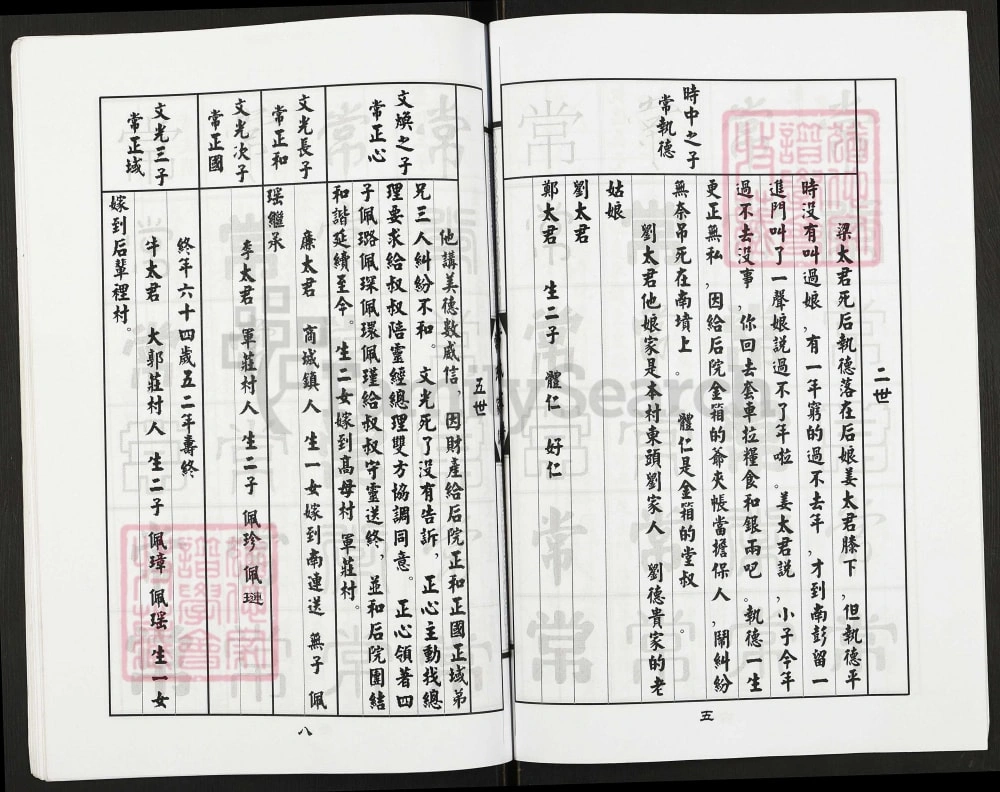 二世
時中之子
常執德
梁太君死后執德落在后娘姜太君膝下，但執德平
時没有叫過娘，有一年窮的過不去年，才到南彭留一
進門叫了一聲娘説過不了年啦。姜太君説，小子今年
過不去没事，你回去套車拉糧食和銀兩吧。執德一生
更正無私，因給后院金箱的爺夾帳當擔保人，鬧糾紛
無奈吊死在南墳上　體仁是金箱的堂叔。
劉太君他娘家是本村東頭劉家人　劉德貴家的老
姑娘
劉太君
鄭太君　生二子　體仁　好仁
五
五世
文煥之子
常正心
他講美德数威信，因財產給后院正和正國正域弟
兄三人糾紛不和。　文光死了没有告訴，正心主動找總
理要求給叔叔陪靈經總理雙方協調同意。　正心領著四
子佩璐佩琛佩環佩瑾給叔叔守靈送終，並和后院團結
和諧延續至今。生二女嫁到高母村　軍莊村。
文光長子
常正和
廉太君　商城鎮人　生一女嫁到南連送　無子　佩
瑶繼承
文光次子
常正國
李太君　軍莊村人　生二子　佩珍　佩璉
文光三子
常正域
終年六十四歲五二年壽終
牛太君　大郭莊村人　生二子　佩璋　佩瑶　生一女
嫁到后輩裡村。
八
FamilySearch